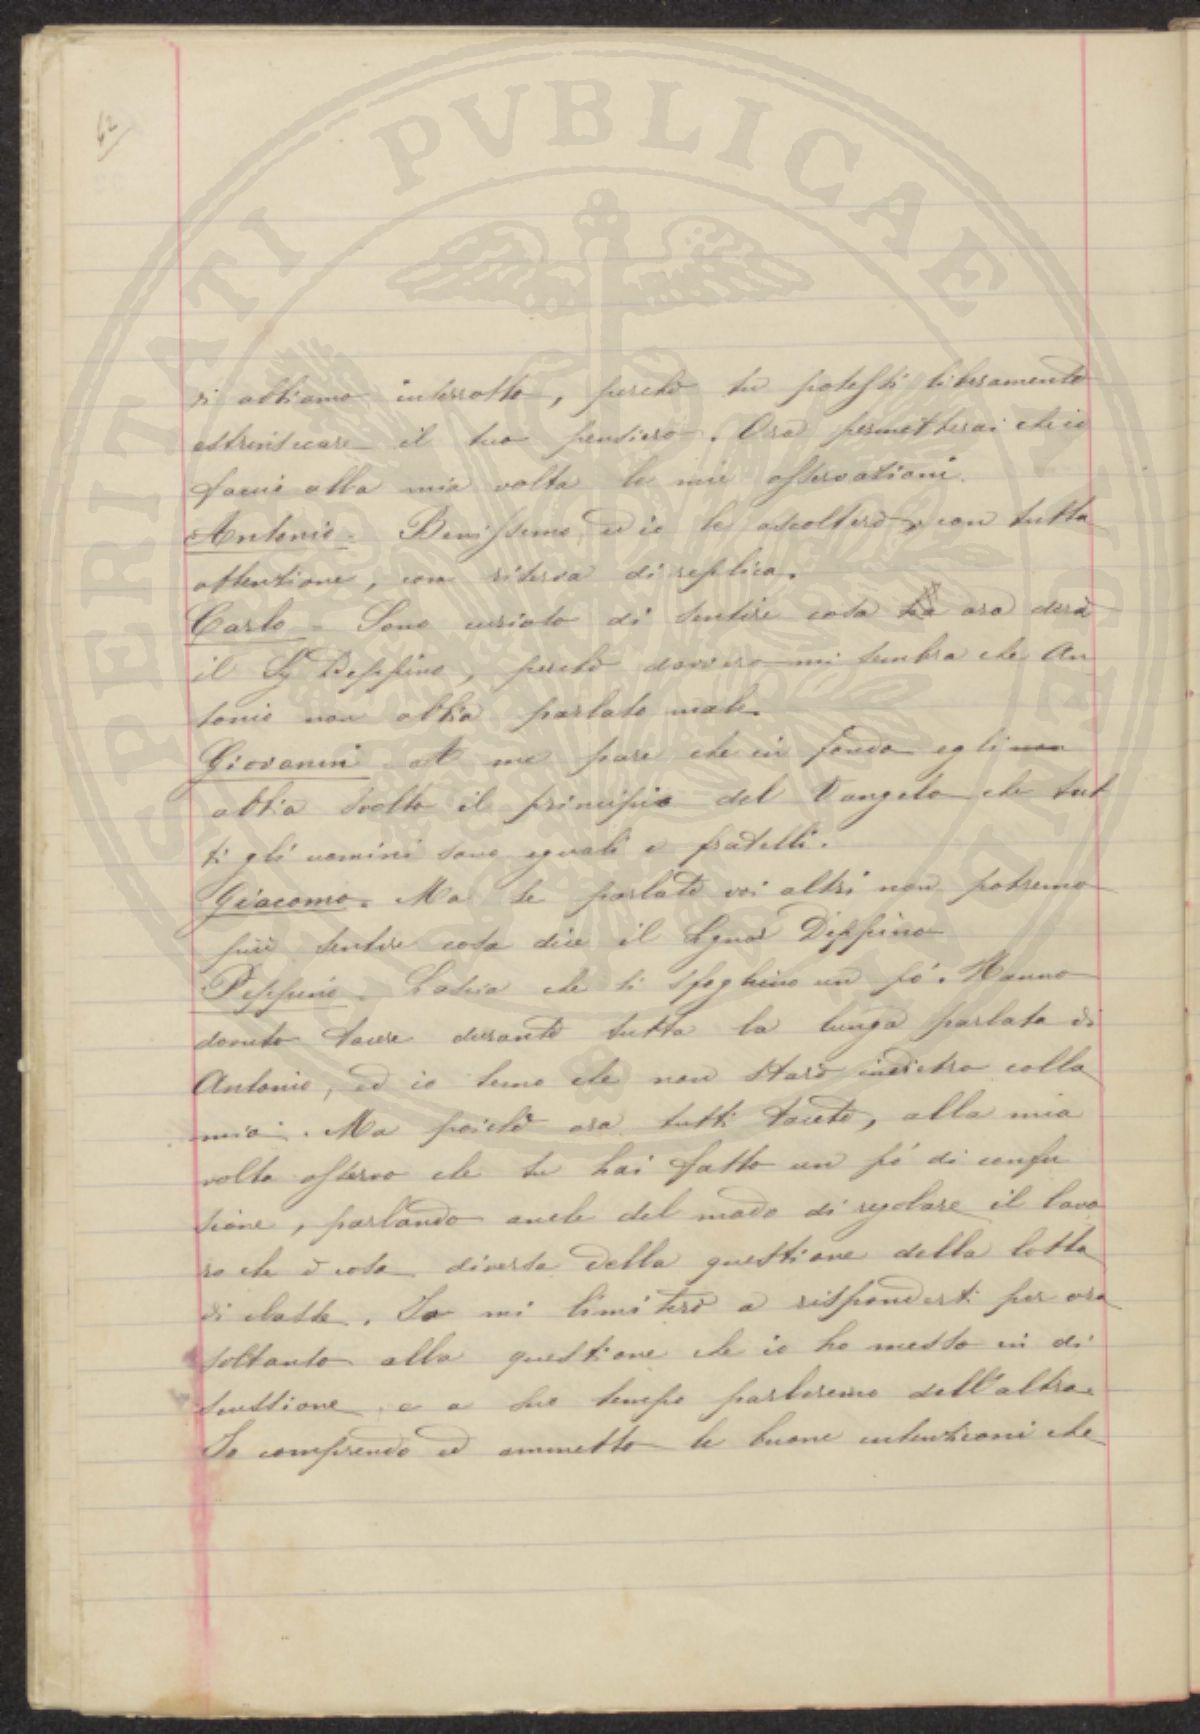 PERITATI PVBLICAE
62
ti abbiamo interrotto, perchè tu potessi liberamente
estrinsecare il tuo pensiero. Ora permetterai che io
faccia alla mia volta le mie osservazioni.
Antonio - Benissimo ed io le ascolterò, con tutta
attenzione, con riserva di replica.
Carlo - Sono curioso di sentire cosa ora dirà
il Sig Peppino, perchè davvero mi sembra che An
tonio non abbia parlato male.
Giovanni - A me pare che in fondo egli non
abbia svolto il principio del Vangelo che tut
ti gli uomini sono eguali e fratelli.
Giacomo. Ma se parlate voi altri non potremo
più sentire cosa dice il Signor Peppino
Peppino - Lascia che si sfoghino un pó. Hanno
dovuto tacere durante tutta la lunga parlata di
Antonio, ed io temo che non starò indietro colla
mia. Ma poichè ora tutti tacete, alla mia
volta osservo che tu hai fatto un pó di confu
sione, parlando anche del modo di regolare il lavo
ro che è cosa diversa della questione della lotta
di classe. Io mi limiterò a risponderti per ora
soltanto alla questione che io ho messo in di
scussione e a suo tempo parleremo dell'altra.
Io comprendo ed ammetto le buone intenzioni che